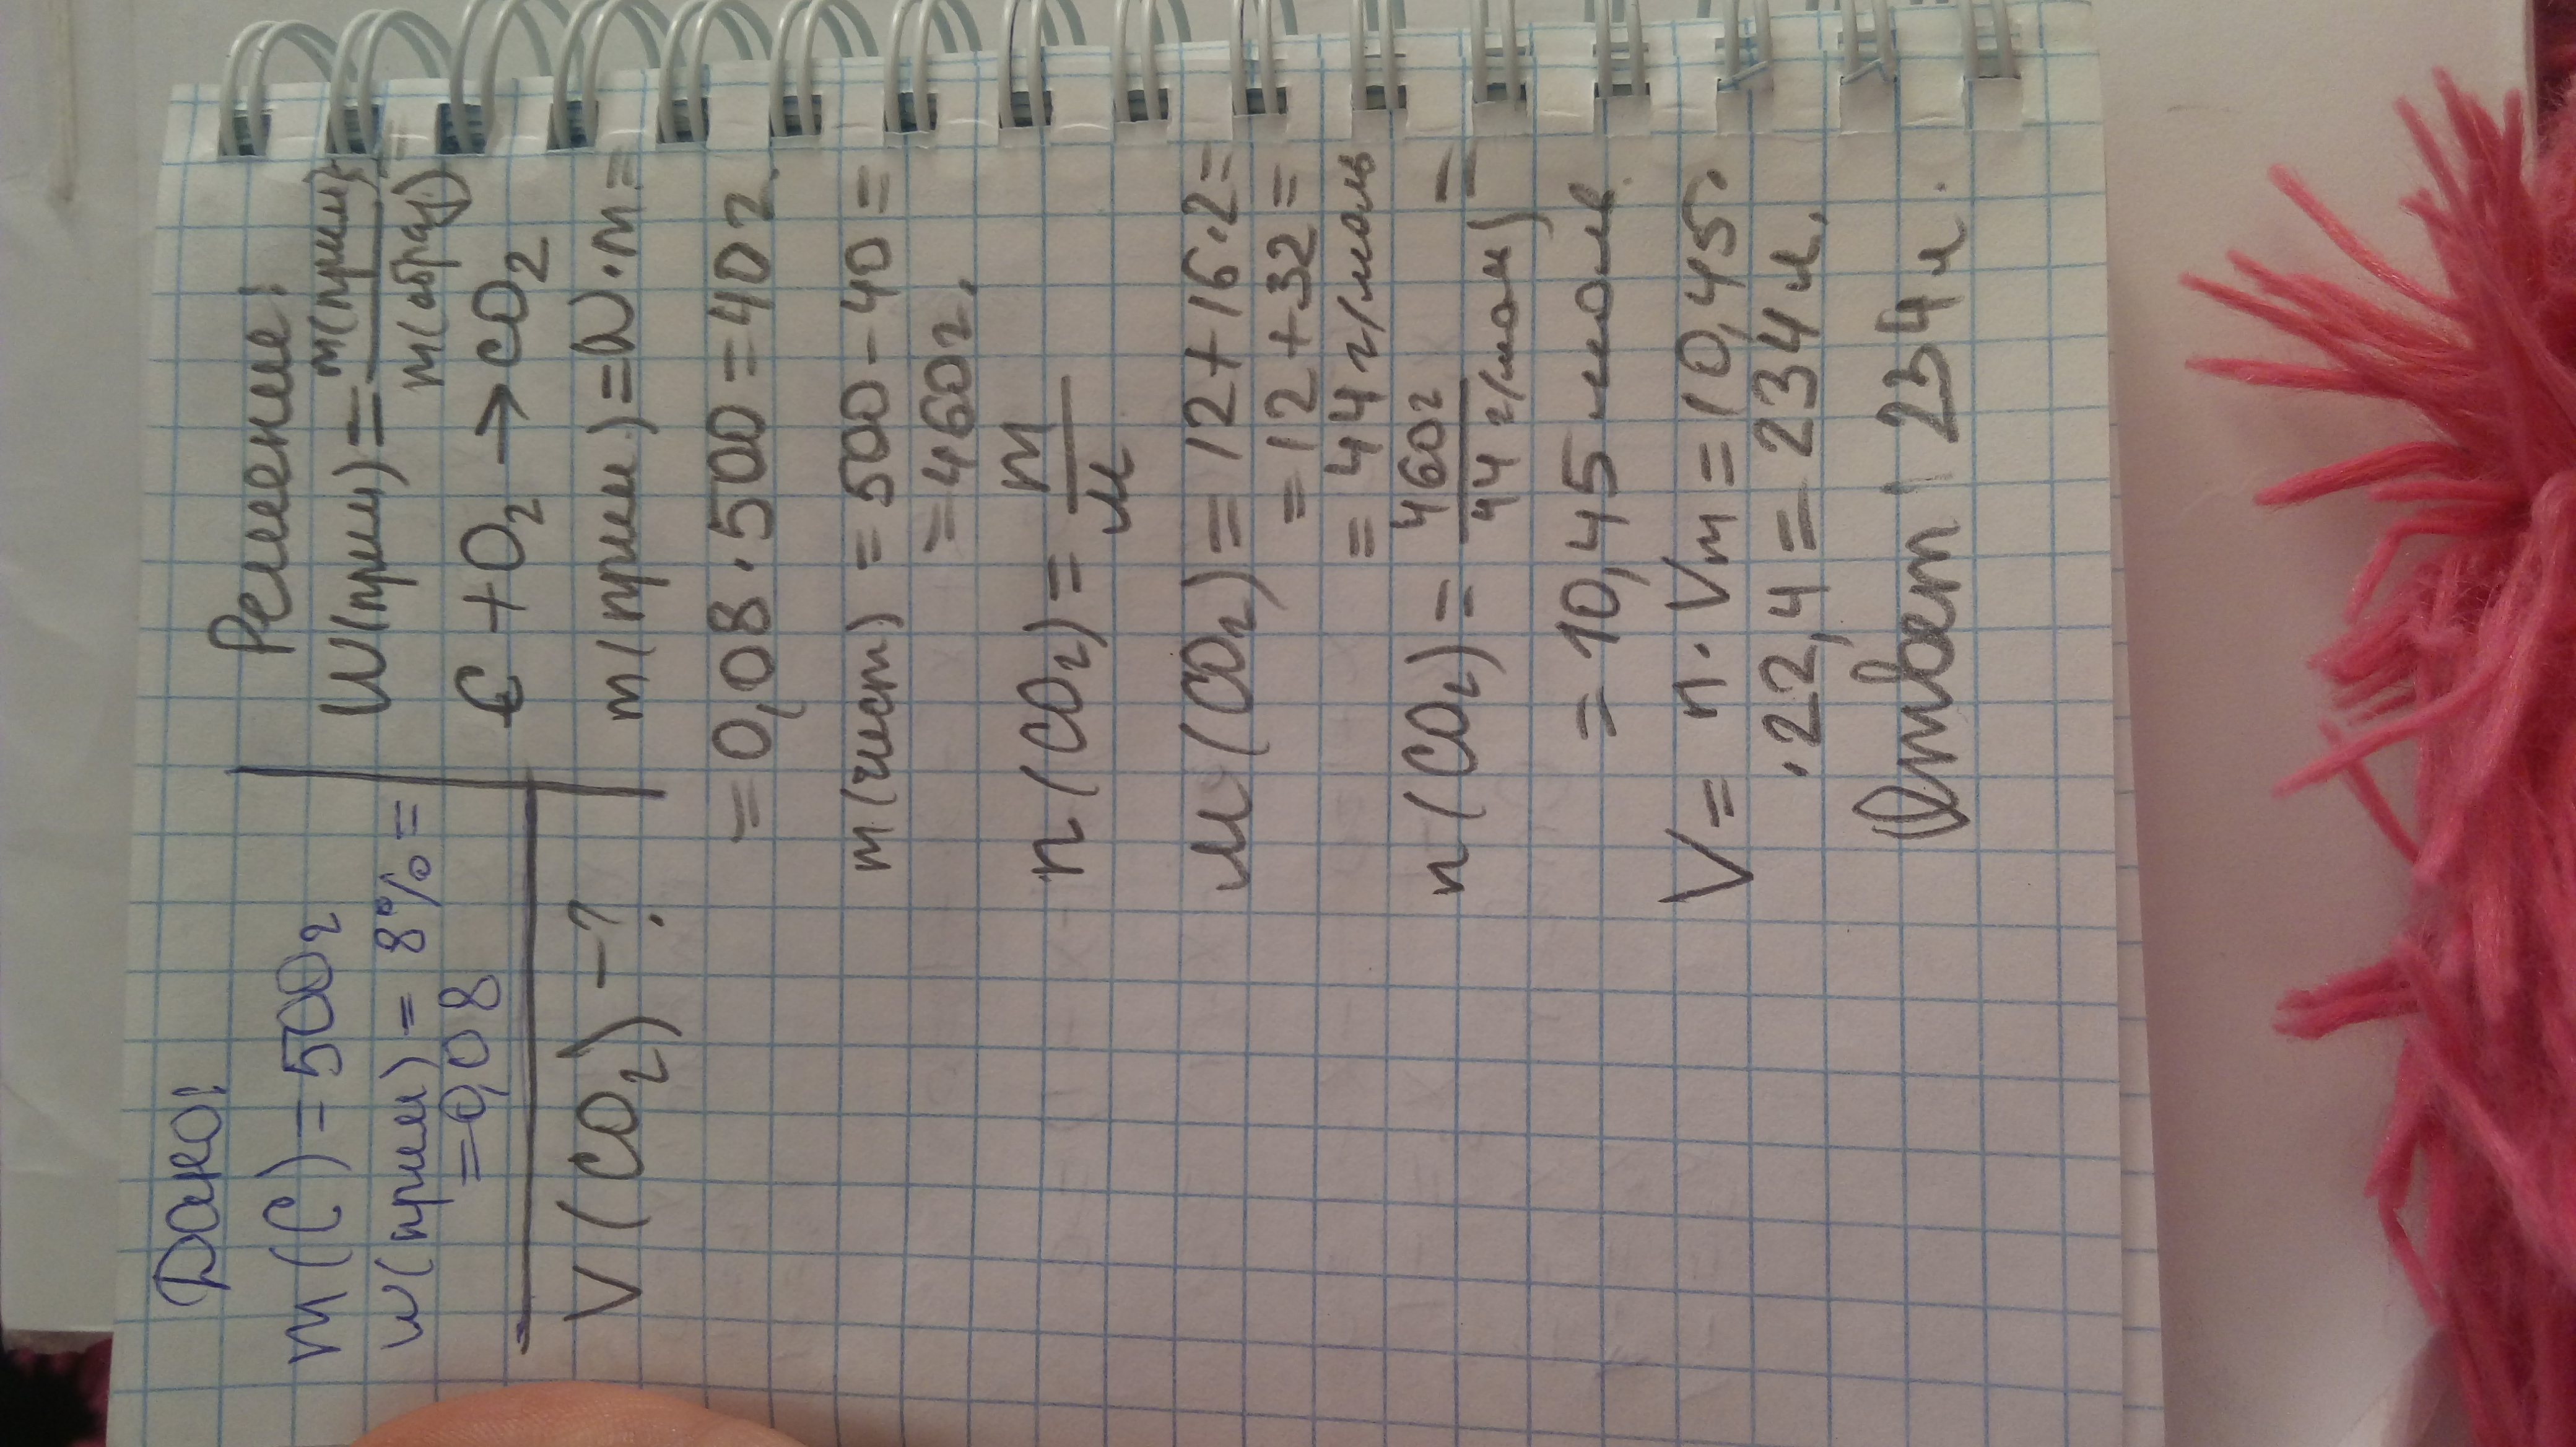 Дано:
m(C) = 500г
w(прим) = 8% =
= 0,08
V(CO₂) - ?
Решение:
W(прим) = m(прим) / m(образ)
C + O₂ → CO₂
m(прим) = W · m =
= 0,08 · 500 = 40г.
m(чист) = 500 - 40 =
= 460г.
n(CO₂) = m / M
M(CO₂) = 12 + 16·2 =
= 12 + 32 =
= 44 г/моль
n(CO₂) = 460г / 44 г/мол =
= 10,45 моль
V = n · Vm = 10,45·
·22,4 = 234 л.
Ответ: 234 л.